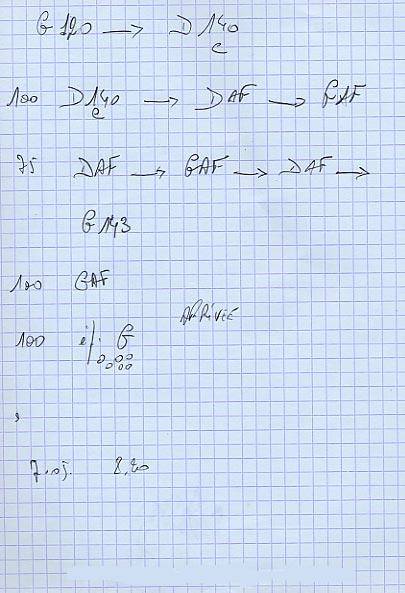 G 120 → D 140
c
100 D 140 → DAF → GAF
c
75 DAF → GAF → DAF →
G 143
100 GAF
ARRIVÉE
100 G
7.05. 2,20